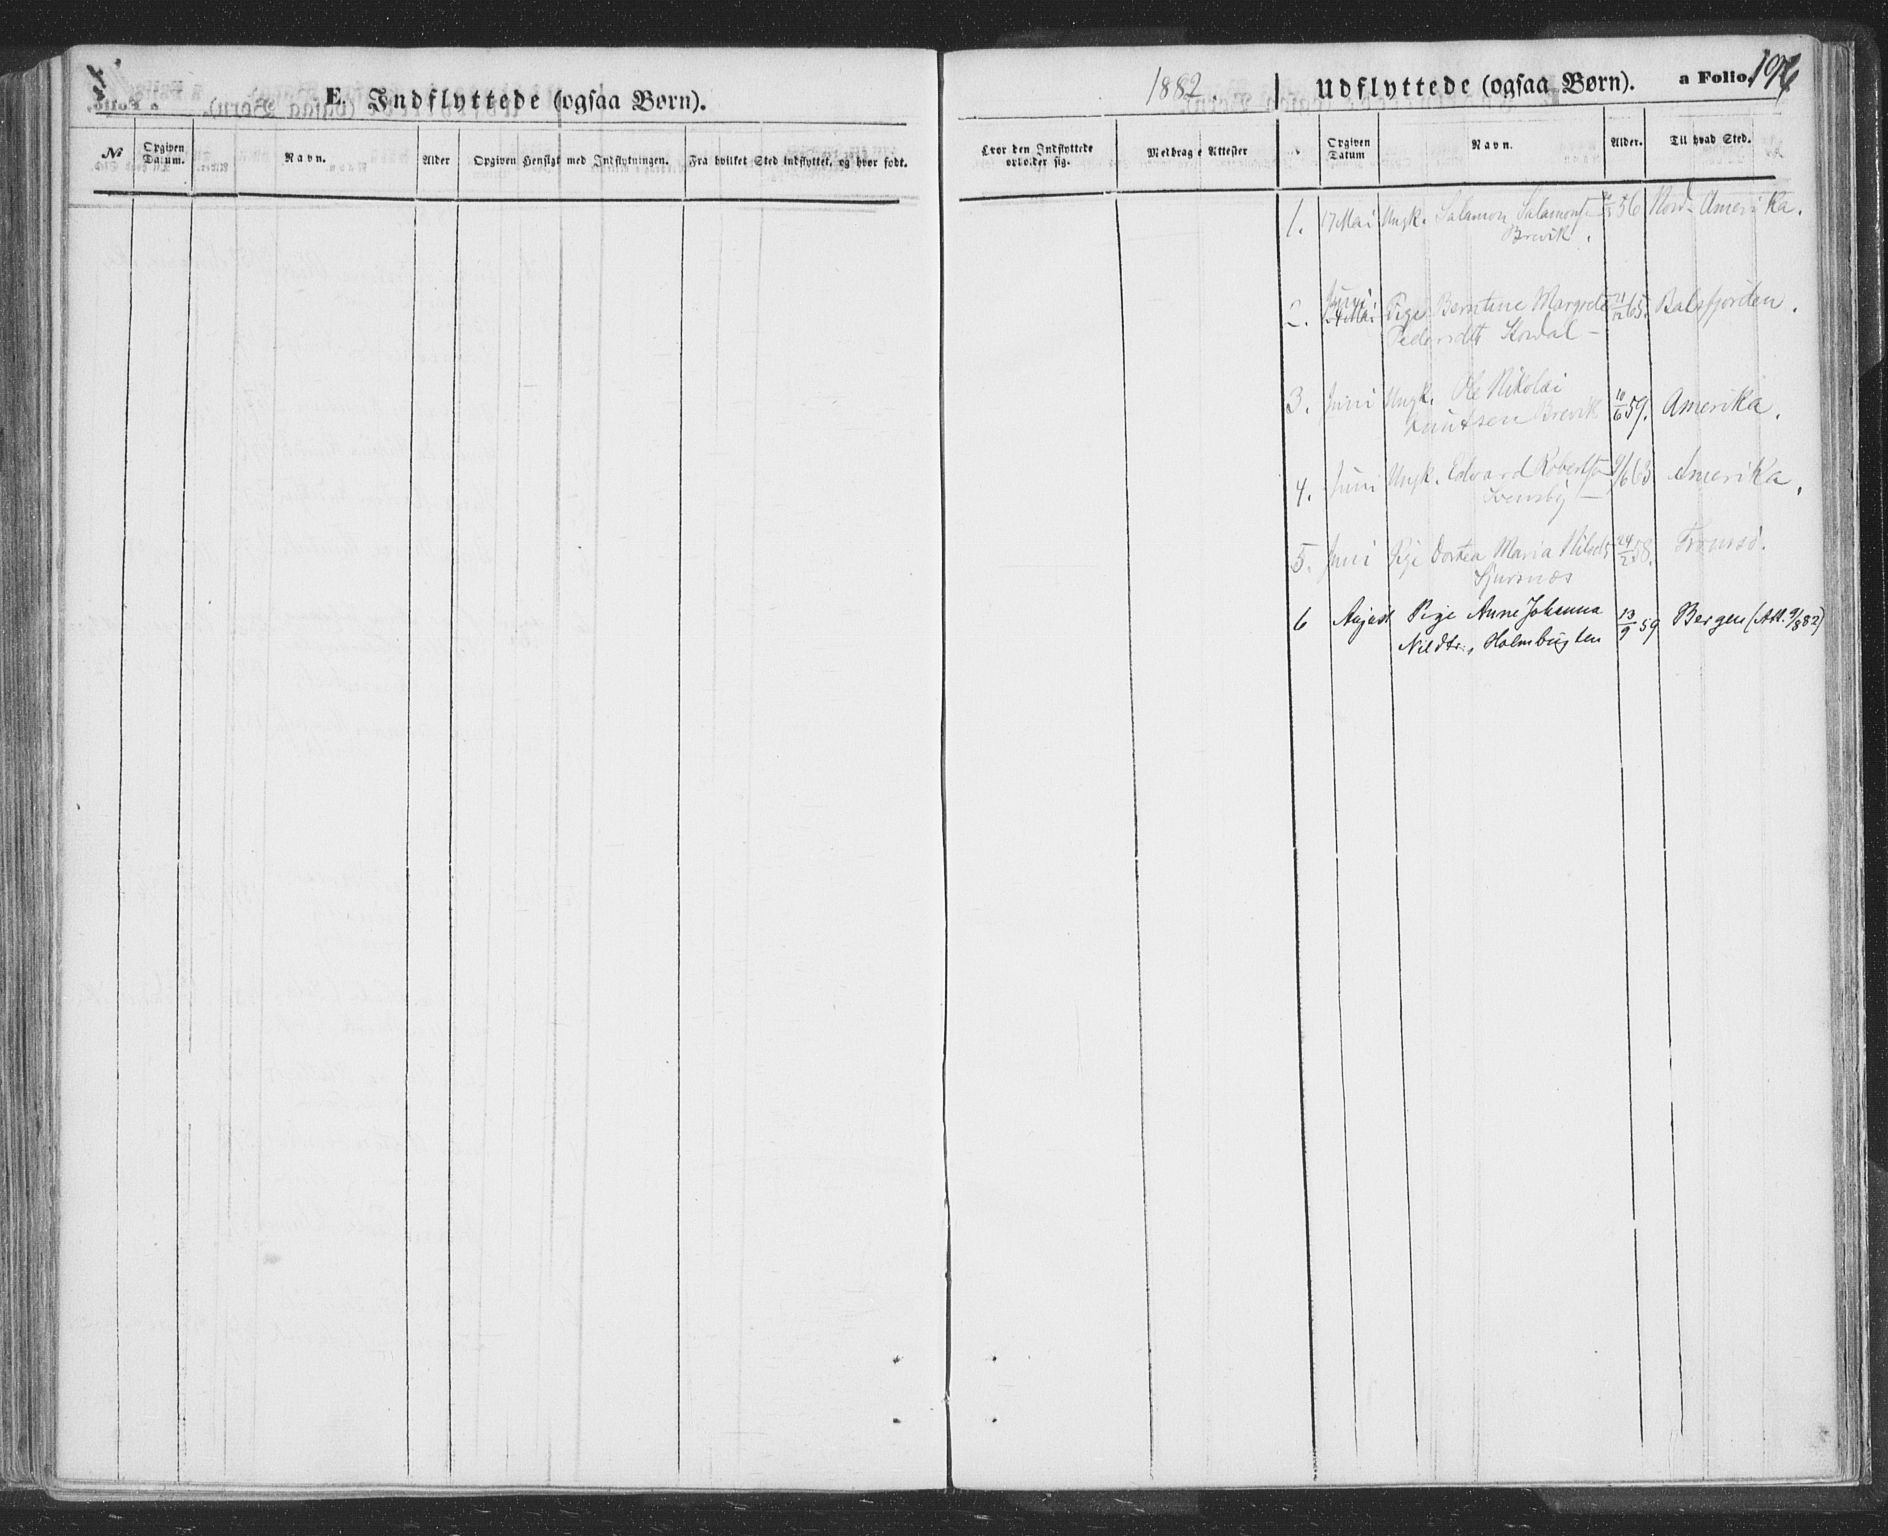 E. Indflyttede (ogsaa Børn).
№
Opgiven Datum.
Navn.
Alder
Opgiven Hensigt med Indflytningen.
Fra hvilket Sted indflyttet, og hvor født.
1882.
Udflyttede (ogsaa Børn).
a Folio.
Hvor den Indflyttede opholder sig.
Meldrag e Attester
Opgiven Datum
Navn.
Alder.
Til hvad Sted.
1. 17 Mai Ungk. Salamon Salamons. 56 Nord-Amerika.
Brevik.
2. Pige Berntine Margrete 65. Balsfjorden.
Pedersdtr Stordal –
3. Juni Ungk. Ole Nikolai 10/6 59. Amerika.
Knutsen Brevik
4. Juni Ungk. Edvard Roberts. 9/6 63 Amerika.
Svensby –
5. Juni Pige Dortea Maria Nilsdtr 24/2 58. Tromsø.
Sjursnæs
6 August Pige Anne Johanna 13/9 59 Bergen (Att. 9/8 82)
Nilsdtr., Holmbugten